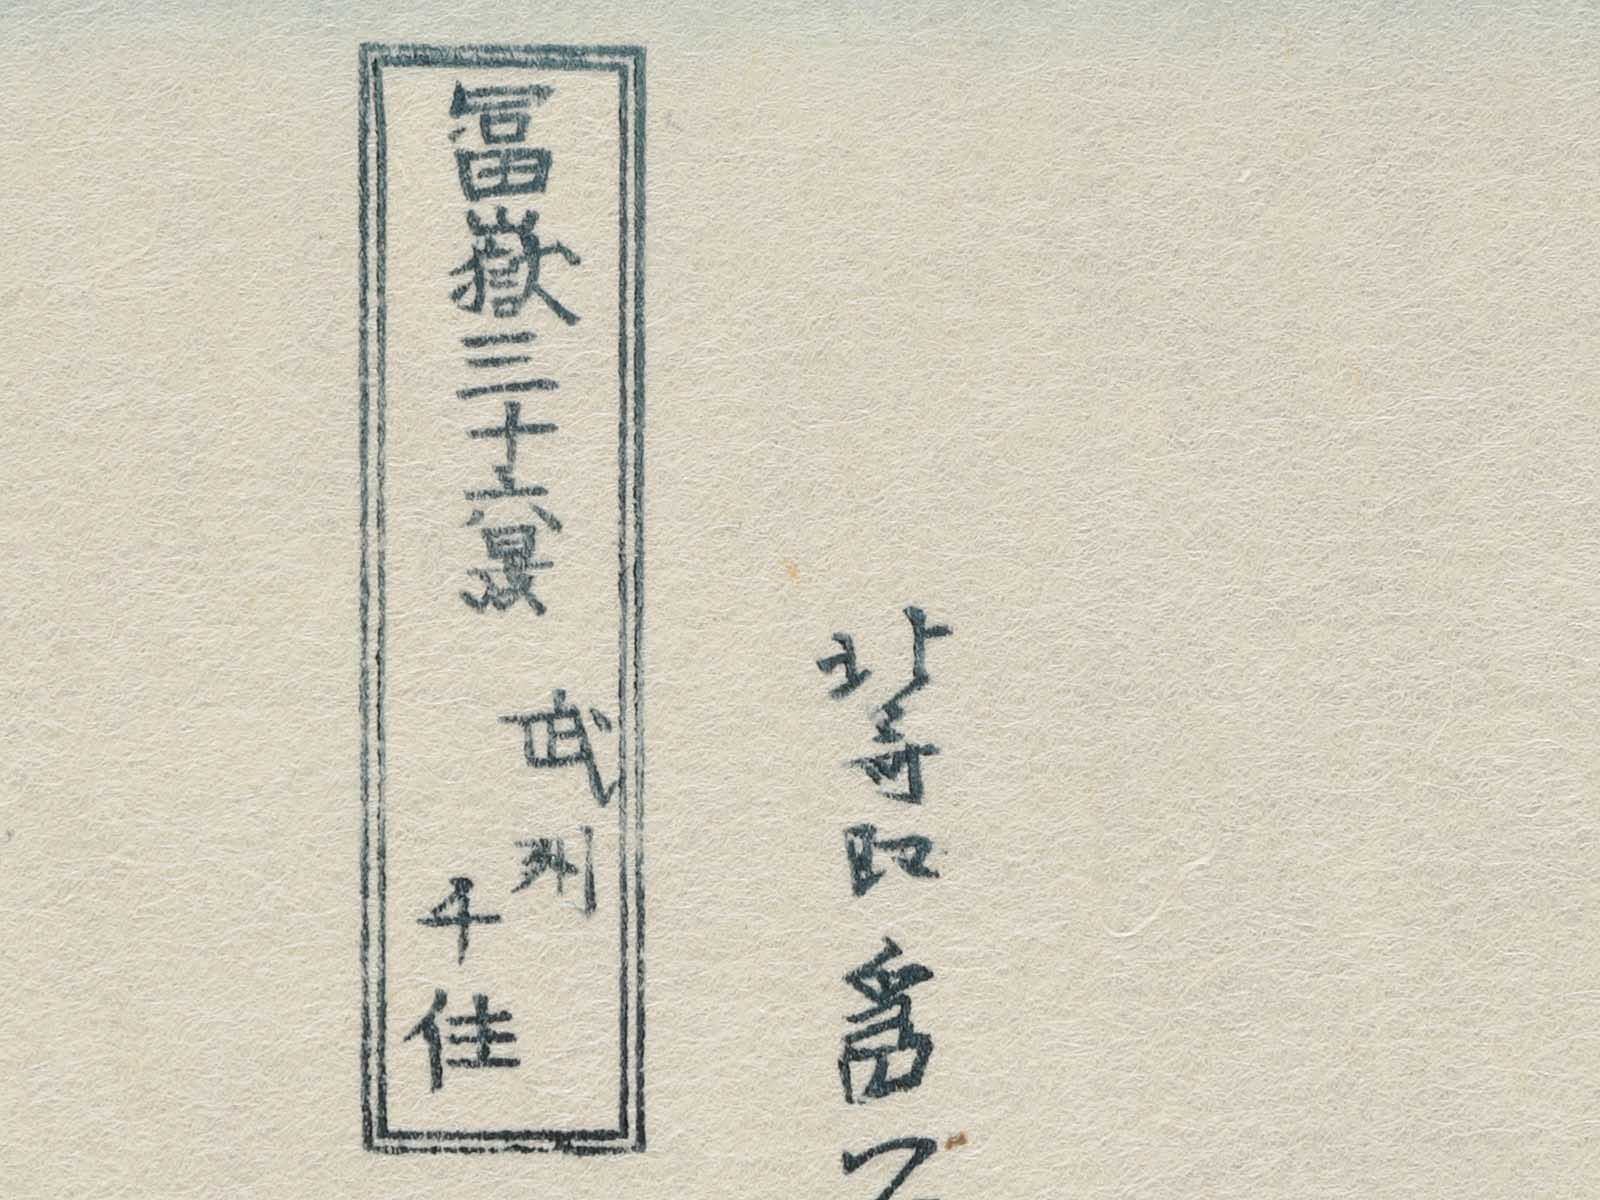 冨嶽三十六景
武州
千佳
北斎改爲